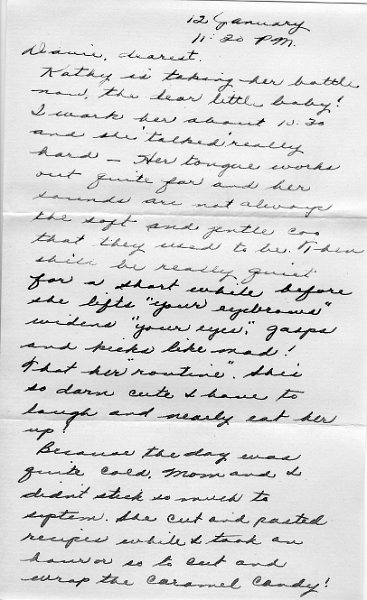 12 January
11:30 P.M.
Davie, dearest.
Kathy is taking her bottle
now, the dear little baby!
I work her about 10:30
and she "talked" really
hard — Her tongue works
out quite far and her
sounds are not always
the soft and gentle coo
that they used to be. Then
she'll be really quiet
for a short while before
she lifts "your eyebrows"
widens "your eyes", gasps
and kicks like mad!
That her "routine". She's
so darn cute I have to
laugh and nearly eat her
up!
Because the day was
quite cold, Mom and I
didn't stick so much to
system. She cut and pasted
recipes while I took an
hour or so to cut and
wrap the caramel candy!